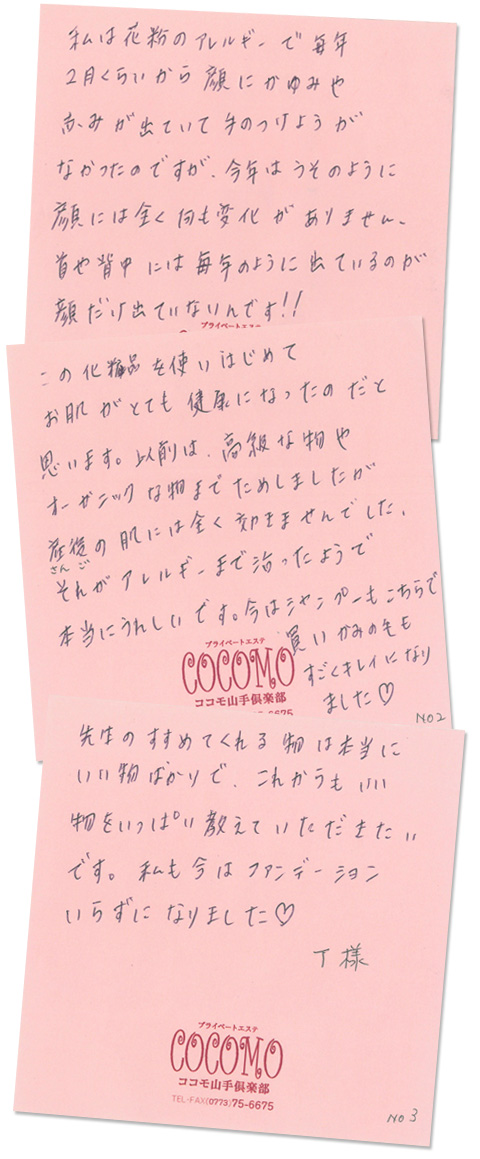 私は花粉のアレルギーで毎年
2月くらいから顔にかゆみや
赤みが出ていて手のつけようが
なかったのですが、今年はうそのように
顔には全く何も変化がありません、
首や背中には毎年のように出ているのが
顔だけ出ていないんです!!
プライベートエステ
この化粧品を使いはじめて
お肌がとても健康になったのだと
思います。以前は、高級な物や
オーガニックな物までためしましたが
産後の肌には全く効きませんでした、
さんご
それがアレルギーまで治ったようで
本当にうれしいです。今はシャンプーもこちらで
買いかみの毛も
すごくキレイになり
ました♡
プライベートエステ
COCOMO
ココモ山手倶楽部
75-6675
NO2
先生のすすめてくれる物は本当に
いい物ばかりで、これからもいい
物をいっぱい教えていただきたい
です。私も今はファンデーション
いらずになりました♡
T様
プライベートエステ
COCOMO
ココモ山手倶楽部
TEL・FAX(0773)75-6675
NO3